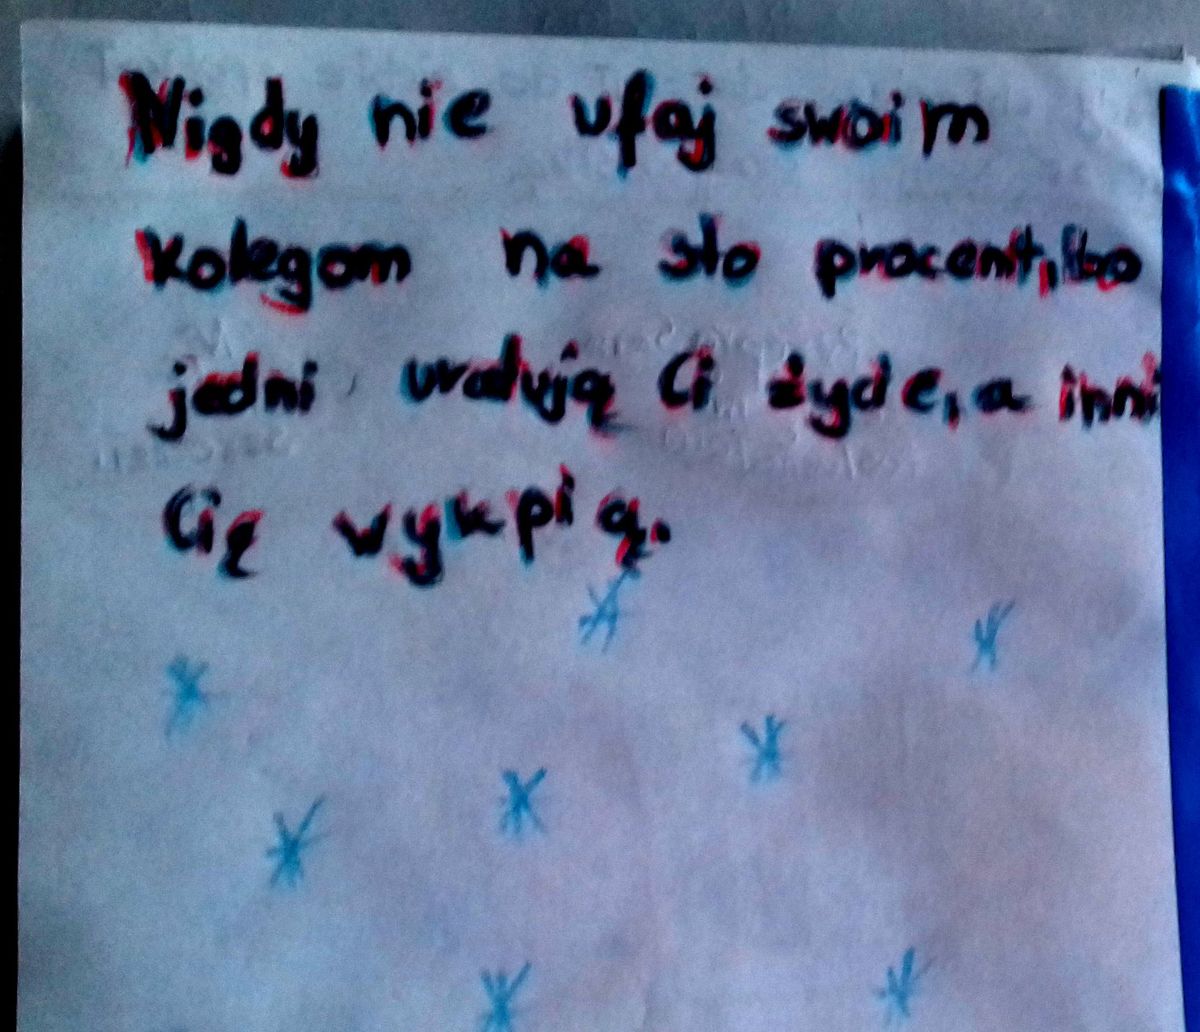 Nigdy nie ufaj swoim
kolegom na sto procent, bo
jedni uratują Ci życie, a inni
Cię wykpią.